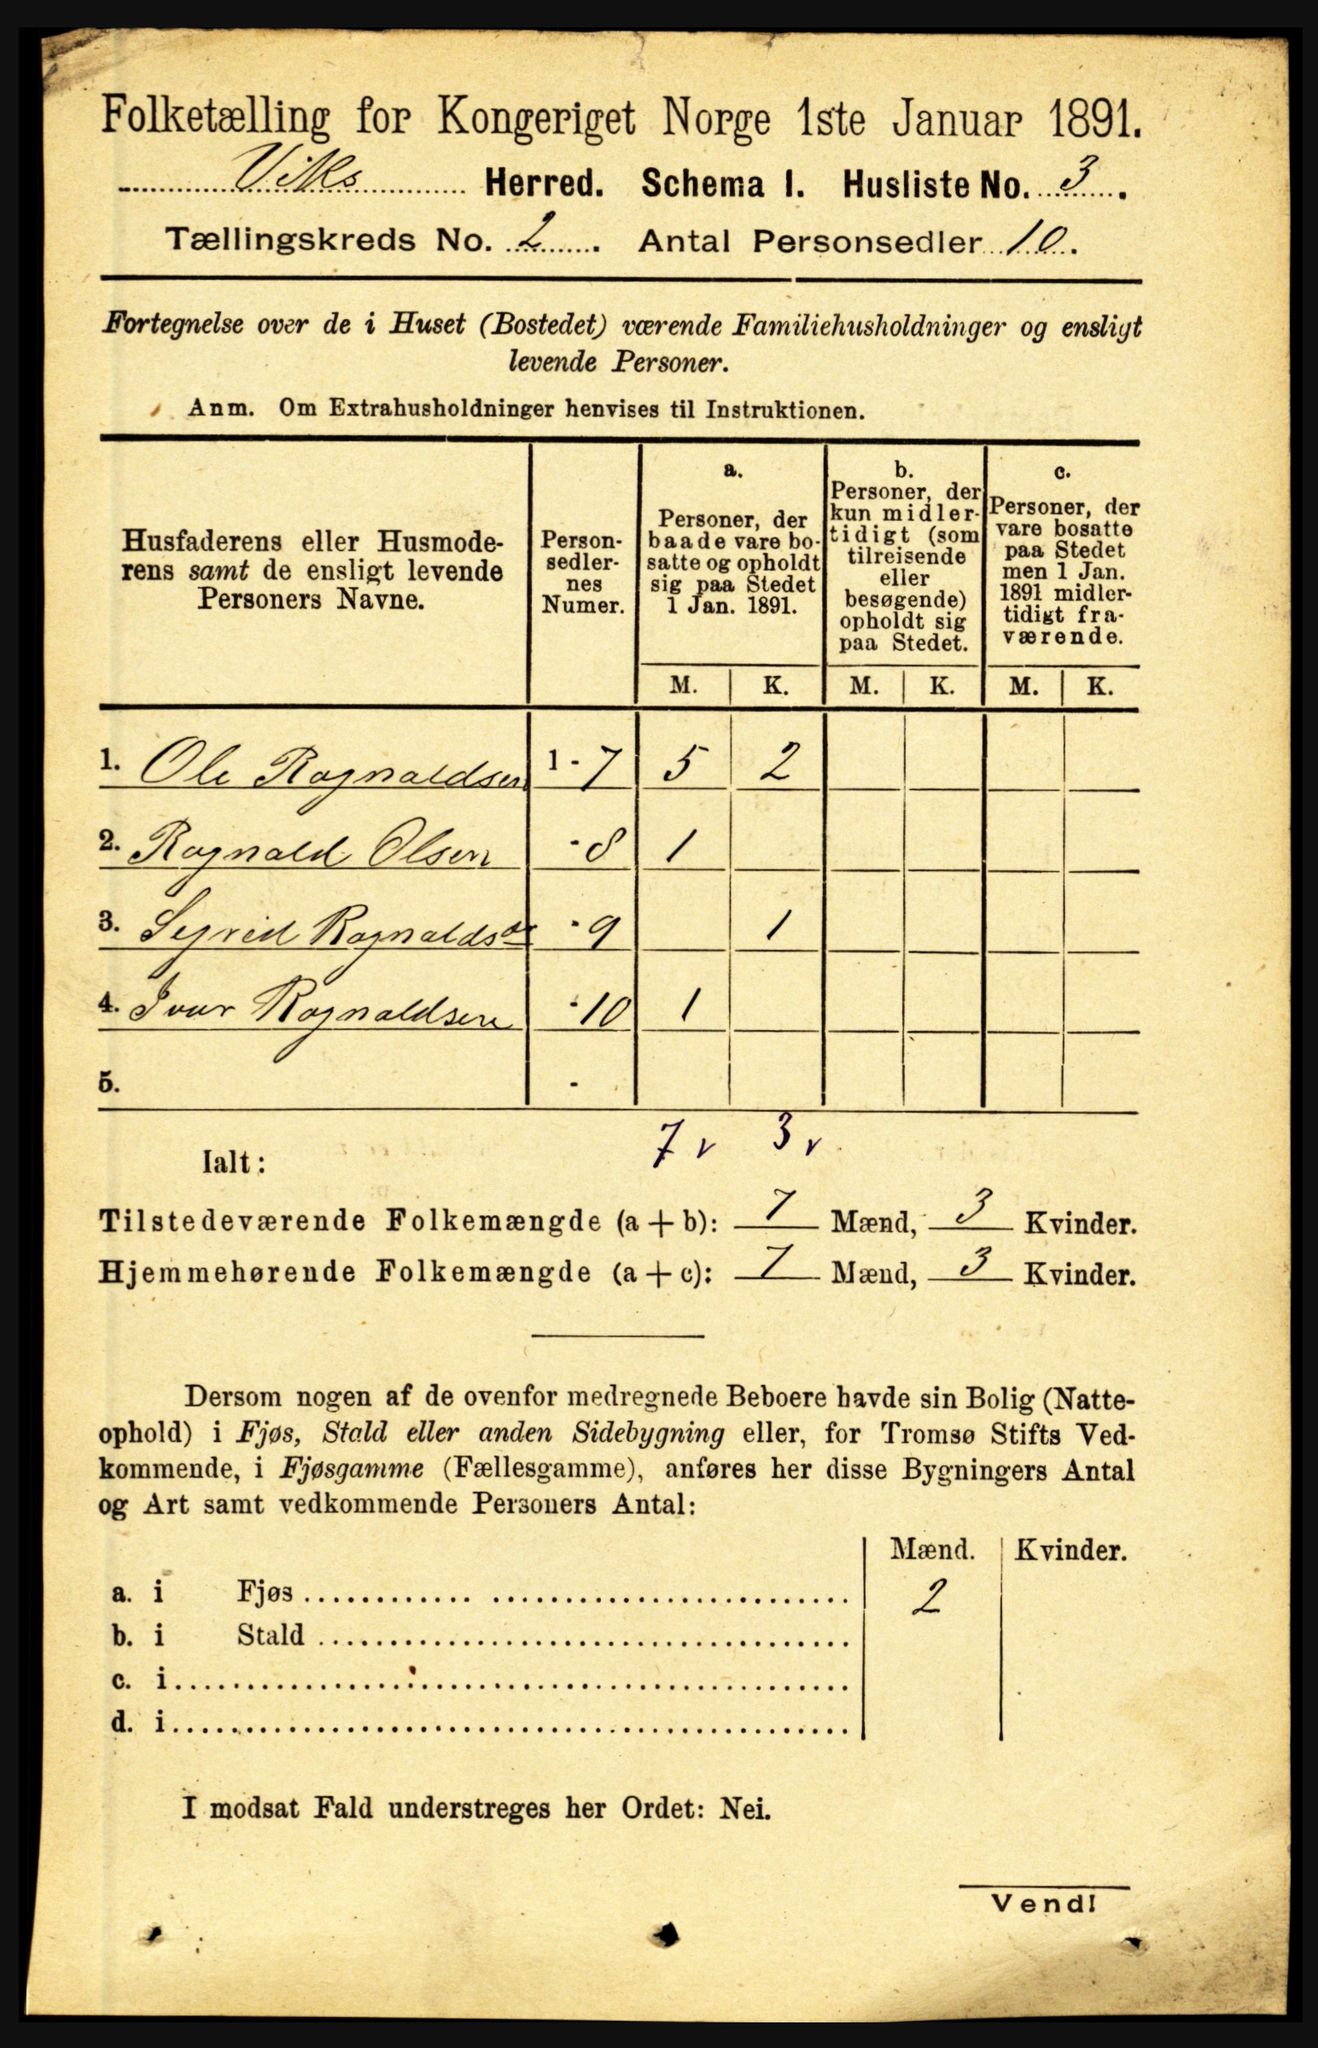 Folketælling for Kongeriget Norge 1ste Januar 1891.
Viks Herred. Schema I. Husliste No. 3.
Tællingskreds No. 2. Antal Personsedler 10.
Fortegnelse over de i Huset (Bostedet) værende Familiehusholdninger og ensligt
levende Personer.
Anm. Om Extrahusholdninger henvises til Instruktionen.
Husfaderens eller Husmode-
rens samt de ensligt levende
Personers Navne.
Person-
sedler-
nes
Numer.
a.
Personer, der
baade vare bo-
satte og opholdt
sig paa Stedet
1 Jan. 1891.
b.
Personer, der
kun midler-
tidigt (som
tilreisende
eller
besøgende)
opholdt sig
paa Stedet.
c.
Personer, der
vare bosatte
paa Stedet
men 1 Jan.
1891 midler-
tidigt fra-
værende.
M. K. M. K. M. K.
1. Ole Ragnaldsen 1 - 7 5 2
2. Ragnald Olsen - 8 1
3. Sigrid Ragnaldsdr - 9 1
4. Ivar Ragnaldsen - 10 1
5. -
7 v 3 v
Ialt:
Tilstedeværende Folkemængde (a + b): 7 Mænd, 3 Kvinder.
Hjemmehørende Folkemængde (a + c): 7 Mænd, 3 Kvinder.
Dersom nogen af de ovenfor medregnede Beboere havde sin Bolig (Natte-
ophold) i Fjøs, Stald eller anden Sidebygning eller, for Tromsø Stifts Ved-
kommende, i Fjøsgamme (Fællesgamme), anføres her disse Bygningers Antal
og Art samt vedkommende Personers Antal:
Mænd. Kvinder.
a. i Fjøs 2
b. i Stald
c. i
d. i
I modsat Fald understreges her Ordet: Nei.
Vend!